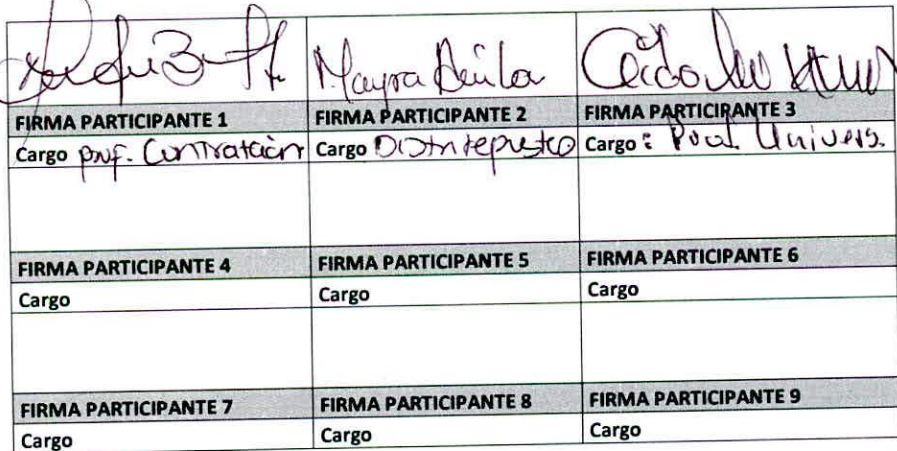 Mayra
FIRMA PARTICIPANTE 1 FIRMA PARTICIPANTE 2 FIRMA PARTICIPANTE 3
Cargo prof. Contratación Cargo Cargo: Univers.
FIRMA PARTICIPANTE 4 FIRMA PARTICIPANTE 5 FIRMA PARTICIPANTE 6
Cargo Cargo Cargo
FIRMA PARTICIPANTE 7 FIRMA PARTICIPANTE 8 FIRMA PARTICIPANTE 9
Cargo Cargo Cargo